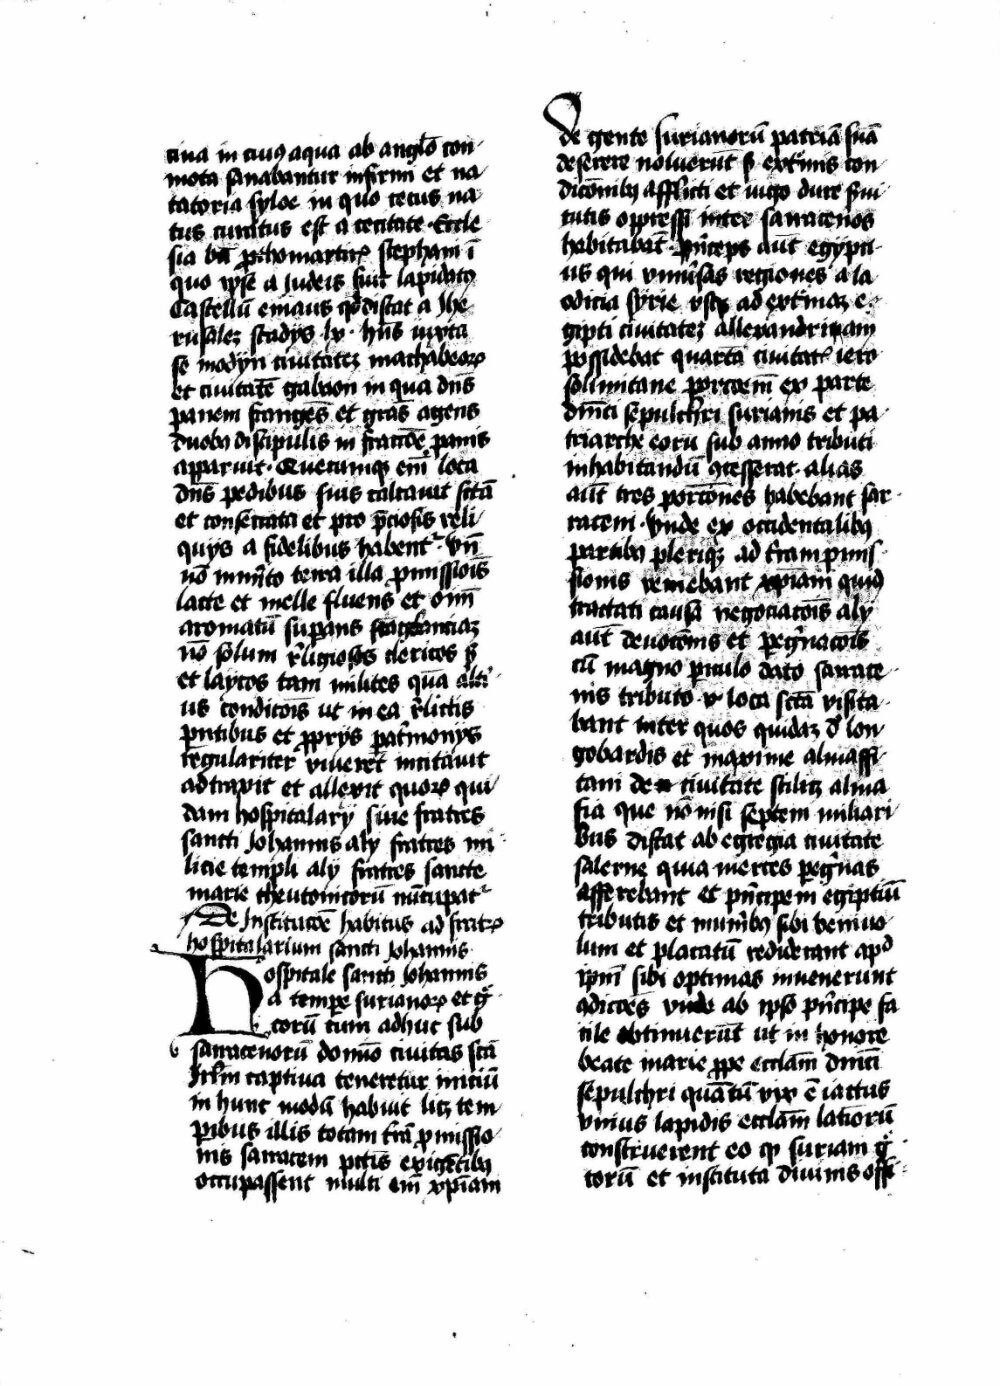 cina in cuiꝰ aqua ab angl̄o con-
mota sanabantur infirmi et na-
tatoria syloe in quo cecus na-
tus curatus est a cecitate Eccle
sia bti ꝓthomartirꝭ stephani ī
quo ip̄e a Judeis fuit lapidatꝰ
Castellū emaus qd̄ distat a Jhe-
rusalēz stadijs lx. hn̄s iuxta
se modyn ciuitatēz machabeorꝝ
et ciuitatē gabaon in qua dn̄s
panem frangēs et grās agens
duobꝫ discipulis in fractōē panis
apparuit. Quecumqꝫ em̄ loca
dn̄s pedibus suis calcauit sctā
et consecrata et pro p̄ciosis reli-
quijs a fidelibus habent᷑. Vn̄
nō inmr̄ito terra illa ꝓmissiōis
lacte et melle fluens et om̄
aromatū suꝑans fragrantiaꝫ
nō solum r̄ligiosos clericos sꝫ
et laycos tam milites qua alti-
us conditōis ut in ea r̄lictis
ꝑntibus et ꝓprijs pat̄monijs
regulariter viueret̄ incitauit
ad traxit et allexit quorꝝ qui-
dam hospitalarij siue fratres
sancti Johannis alij fratres mi-
licie templi alij fratres sancte
marie theutonicorū nūcupāt᷑
De Institutōe habitus ad fratꝝ
hospitalarium sancti Johannis
Hospitale sancti Johannis
a tempe surianorꝝ et gͥ-
corū cum adhuc sub
sarracenorū domīo ciuitas sctā
Jrlm̄ captiua teneretur iniciū
in hunc modū habuit licꝫ tem-
ꝑibus illis totam t̄rā ꝓmissio-
nis sarraceni pctīs exigētibꝫ
occupassent multi em̄ xp̄iani
De gente surianorū patriā suā
deserere noluerūt sꝫ ext̄mis con-
dicōnibꝫ afflicti et iugo dure s̄ui-
tutis oppressi inter sarracenos
habitabāt. Pn̄ceps aūt egypti-
us qui vniūsas regiones a la-
odicia syrie vsqꝫ ad ext̄maꝫ e-
gipti ciuitatēz allexandrinam
possidebat quartā ciuitatꝭ iero-
solimitane porcōem̄ ex parte
dm̄ci sepulchri surianis et pa-
triarche eorū sub anno tributi
inhabitandū ꝯcesserat. alias
aūt tres porcōnes habebant sar-
raceni. Vnde ex occidentalibꝫ
partibꝫ pleriqꝫ ad t̄ram ꝓmis-
sionis veniebant xp̄iani quid
tractati causā negociatōis alij
aūt deuocōnis et ꝑeḡnacōis
cū magno ꝑiculo dato sarrace-
nis tributo v̄ loca sctā visita-
bant inter quos quidaꝫ d̄ lon-
gobardis et maxime almassi-
tani de ciuitate scilicꝫ alma-
fia que nō nisi septem miliari-
bus distat ab egregia ciuitate
salerne quia merces ꝑeḡnas
afferebant et pn̄cipem egiptiū
tributis et mun̄ibꝫ sibi beniuo-
lum et placatū redderant apd̄
ip̄m sibi optimas inuenerunt
ꝯdicōēs vnde ab ip̄o pn̄cipe fa-
cile obtinuerūt ut in honore
beate marie ꝓpe ecclām dm̄ci
sepulchri quātū vix ē iactus
vnius lapidis ecclām latiorū
construerent eo qꝫ suriani gͥ-
corū et instituta diuinis offi-